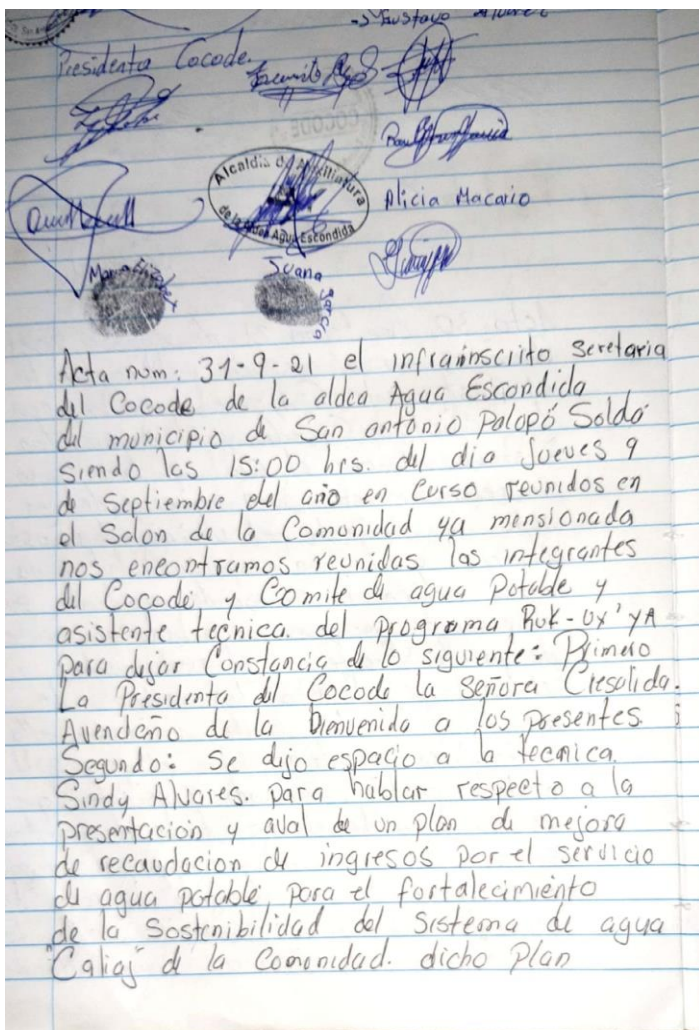 Presidenta Cocode.
Alcaldia de Auxiliatura
Agua Escondida
Alicia Macario
Juana
Garcia
Acta num: 31-9-21 el infrainscrito Secretaria
del Cocode de la aldea Agua Escondida
del municipio de San antonio Palopó Sololá
siendo las 15:00 hrs. del dia Jueves 9
de Septiembre del año en Curso reunidos en
el Salon de la Comunidad ya mensionada
nos encontramos reunidas las integrantes
del Cocode y Comite de agua Potable y
asistente tecnica. del programa Ruk-Ux'yA
para dejar Constancia de lo siguiente: Primero
La Presidenta del Cocode la Señora Cresolida.
Avendaño de la bienvenida a los presentes.
Segundo: Se dejo espacio a la tecnica.
Sindy Alvares. para hablar respecto a la
presentacion y aval de un plan de mejora
de recaudacion de ingresos por el servicio
de agua potable para el fortalecimiento
de la Sostenibilidad del Sistema de agua
"Caliaj" de la Comonidad. dicho Plan